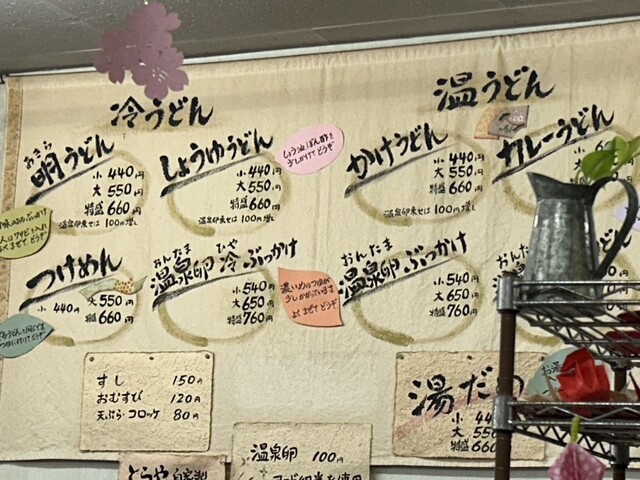 冷うどん
温うどん
あきら
明うどん
小 440円
大 550円
特盛 660円
温泉卵乗せは 100円増し
しょうゆうどん
小 440円
大 550円
特盛 660円
温泉卵乗せは 100円増し
かけうどん
小 440円
大 550円
特盛 660円
温泉卵乗せは 100円増し
カレーうどん
つけめん
小 440円
大 550円
特盛 660円
おんたま ひや
温泉卵 冷 ぶっかけ
小 540円
大 650円
特盛 760円
濃いめのつゆが
少しかかっています
よくまぜてどうぞ
おんたま
温泉卵 ぶっかけ
小 540円
大 650円
特盛 760円
すし 150円
おむすび 120円
天ぷら・コロッケ 80円
湯だめ
小 440
大 550
特盛 660
温泉卵 100円
とらや自家製